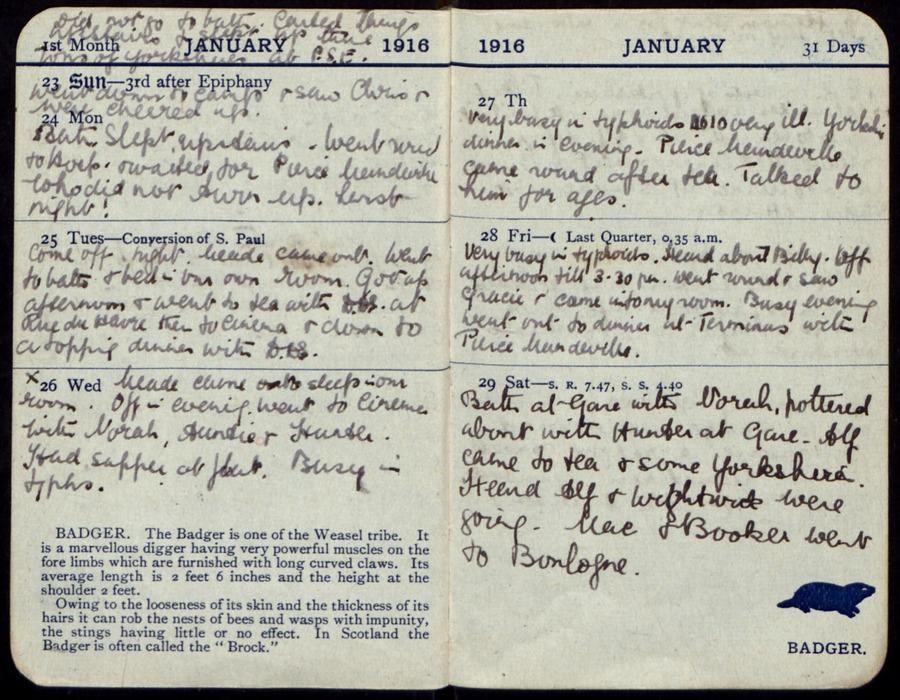 Did not go to bath. Carted things
upstairs & slept up there
tons of Yorkshires at P.S.E.
1st Month JANUARY 1916
23 Sun—3rd after Epiphany
went down to camp & saw Chris &
were cheered up.
24 Mon
Bath Slept upstairs. Went round
to Hosp. & waited for Pierce Mandeville
who did not turn up. Last
night!
25 Tues—Conversion of S. Paul
Come off night. Meade came out. Went
to bath & bed in our own room. Got up
afternoon & went to tea with at
Rue du Havre then to Cinema & down to
a topping dinner with
x 26 Wed Meade came to sleep in our
room. Off in evening. Went to Cinema
with Norah, Auntie & Hunter.
Had supper at flat. Busy in
typhs.
BADGER. The Badger is one of the Weasel tribe. It
is a marvellous digger having very powerful muscles on the
fore limbs which are furnished with long curved claws. Its
average length is 2 feet 6 inches and the height at the
shoulder 2 feet.
Owing to the looseness of its skin and the thickness of its
hairs it can rob the nests of bees and wasps with impunity,
the stings having little or no effect. In Scotland the
Badger is often called the “Brock.”
1916 JANUARY 31 Days
27 Th
Very busy in typhoids 1010 very ill. Yorkshire
dinner in evening. Pierce Mandeville
came round after tea. Talked to
him for ages.
28 Fri—☾ Last Quarter, 0.35 a.m.
Very busy in typhoids. Heard about Billy. Off
afternoon till 3-30 pm. Went round & saw
Gracie & came into my room. Busy evening
went out to dinner at Terminus with
Pierce Mandeville.
29 Sat—S. R. 7.47, S. S. 4.40
Bath at Gare with Norah, pottered
about with Hunter at Gare. Alf
came to tea & some Yorkshires.
Heard Alf & Wightwick were
going. Mac & Booker went
to Boulogne.
BADGER.